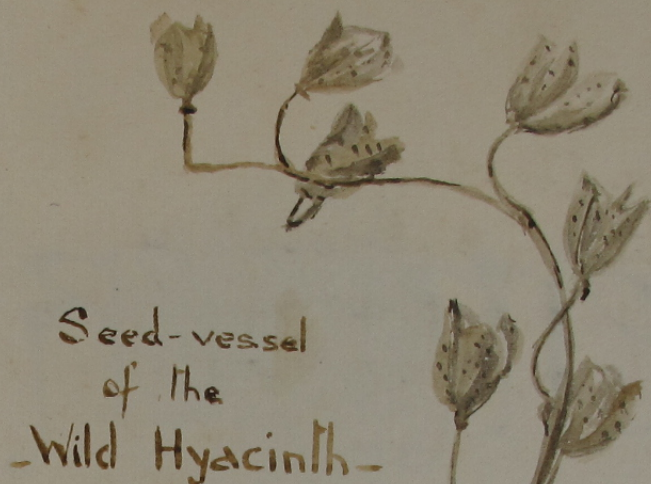 Seed-vessel
of the
-Wild Hyacinth-